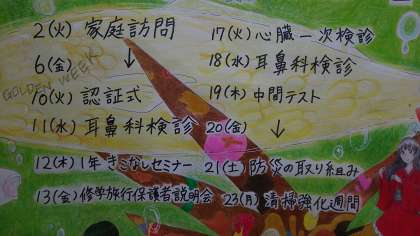 2(火) 家庭訪問
↓
6(金)
GOLDEN WEEK
10(火) 認証式
11(水) 耳鼻科検診
12(木) 1年 きこなしセミナー
13(金) 修学旅行保護者説明会
17(火) 心臓一次検診
18(水) 耳鼻科検診
19(木) 中間テスト
20(金) ↓
21(土) 防災の取り組み
23(月) 清掃強化週間